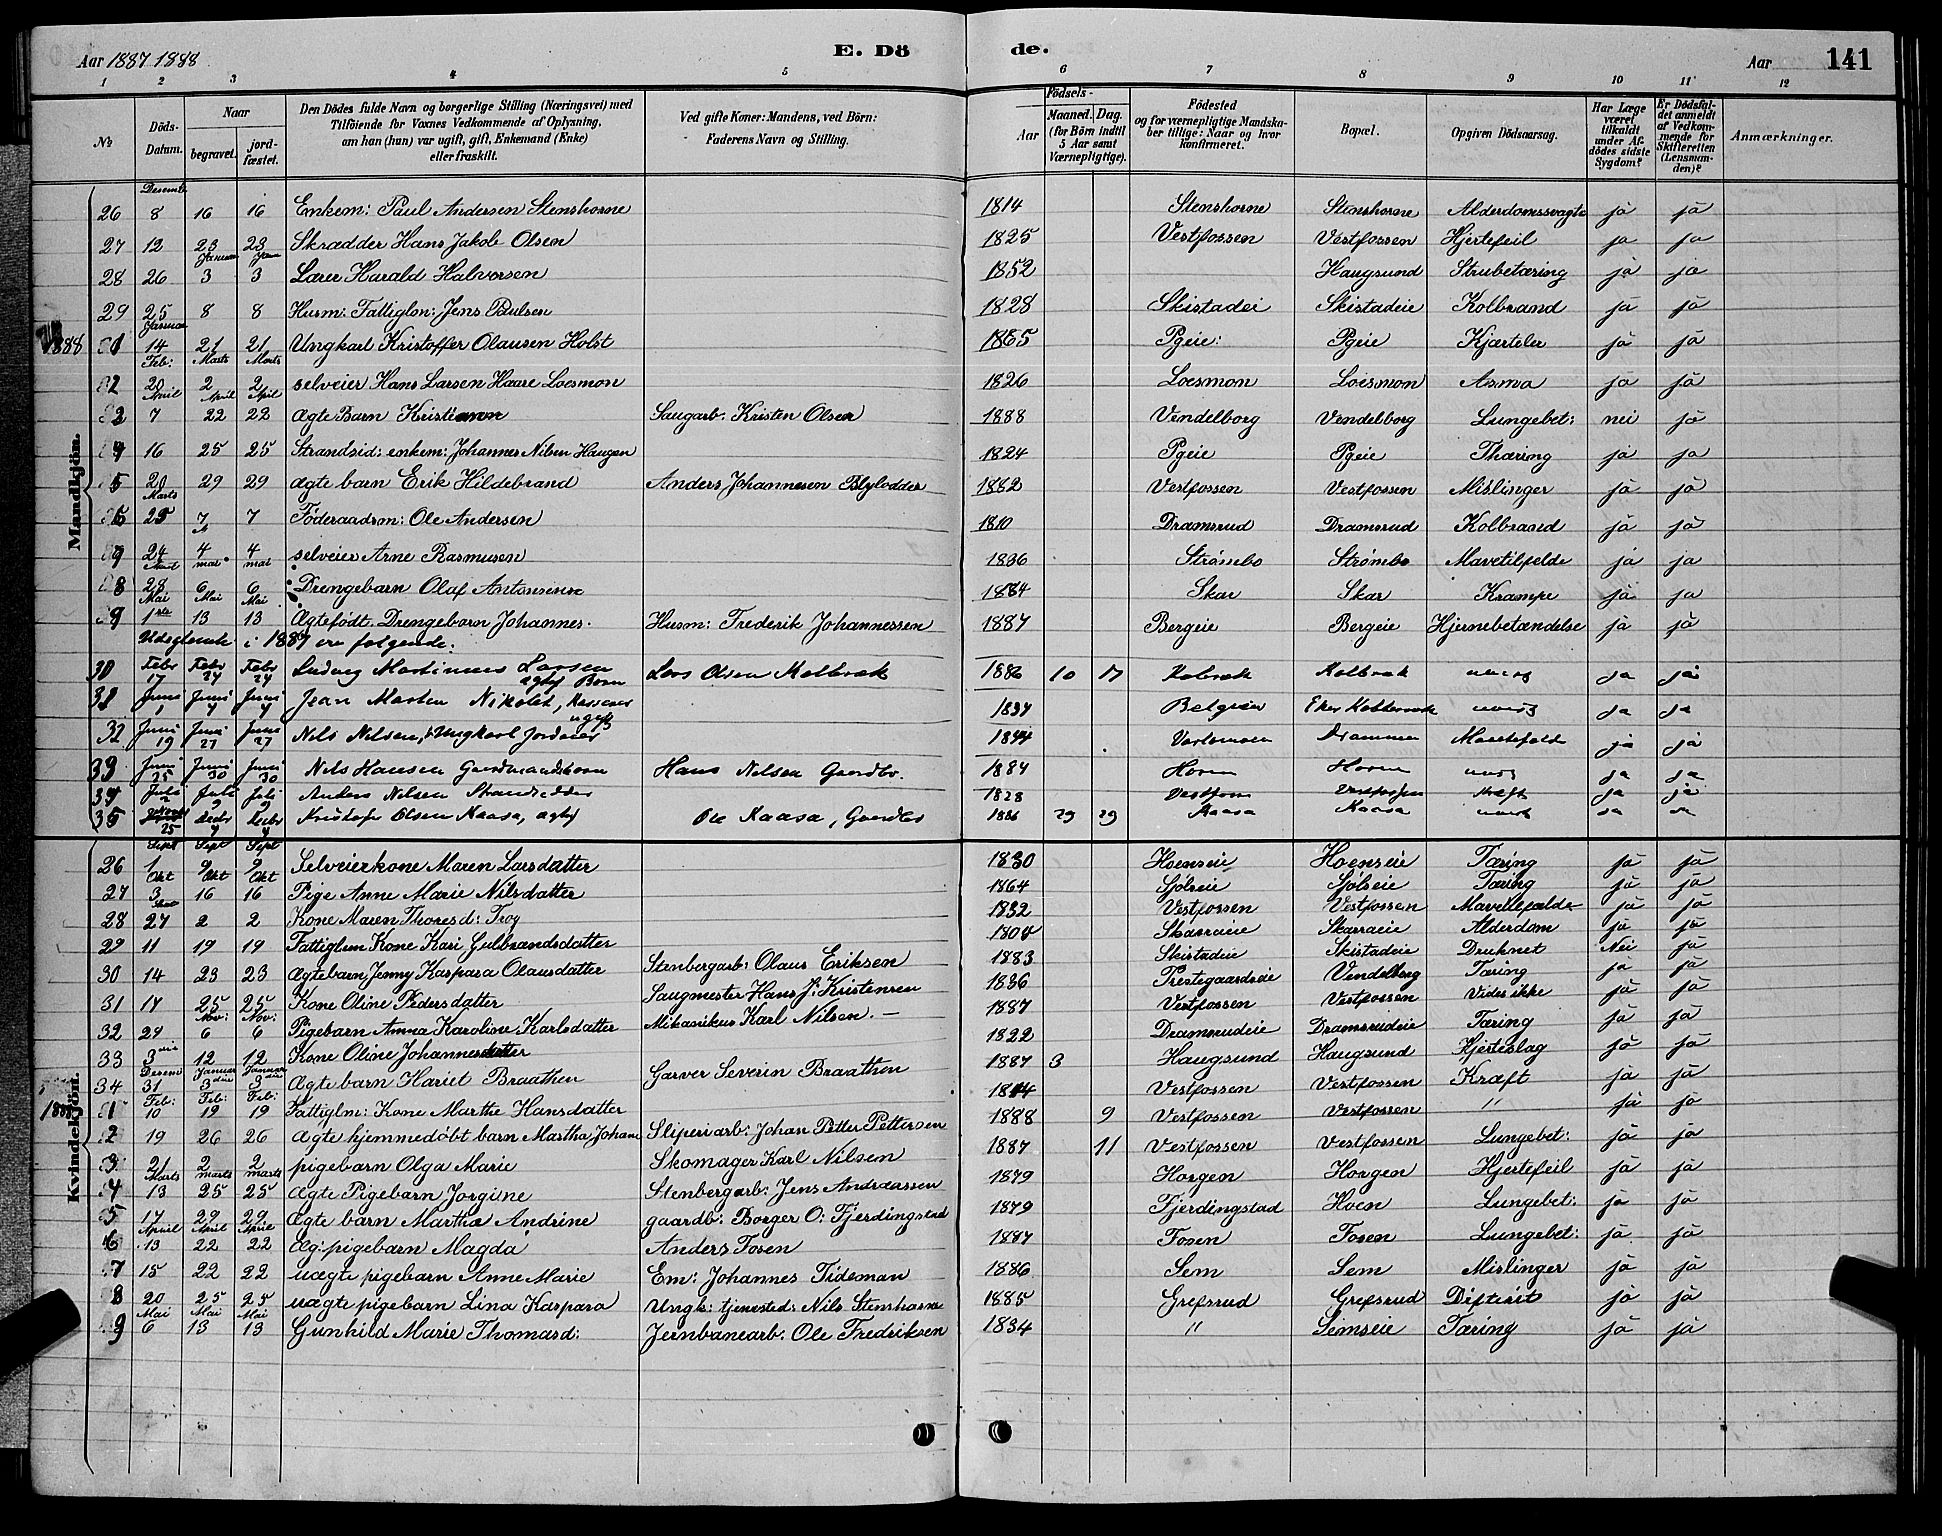 Aar 1887 1888 E. Dö de. Aar 141
1 2 3 4 5 6 7 8 9 10 11 12
№ Döds-Datum. Naar begravet. jord-fæstet. Den Dödes fulde Navn og borgerlige Stilling (Næringsvei) med Tilföiende for Voxnes Vedkommende af Oplysning, om han (hun) var ugift, gift, Enkemand (Enke) eller fraskilt. Ved gifte Koner: Mandens, ved Börn: Faderens Navn og Stilling. Födsels- Aar Maaned. Dag. (for Börn indtil 5 Aar samt Værnepligtige). Födested og for værnepligtige Mandskaber tillige: Naar og hvor konfirmeret. Bopæl. Opgiven Dödsaarsag. Har Læge været tilkaldt under Afdödes sidste Sygdom? Er Dödsfaldet anmeldt af Vedkommende for Skifteretten (Lensmanden)? Anmærkninger.
Mandkjön.
Desemb.
26 8 16 16 Enkem: Paul Andersen Stenshorne 1814 Stenshorne Stenshorne Alderdomssvagh ja ja
27 12 23 23 Skrædder Hans Jakob Olsen 1825 Vestfossen Vestfossen Hjertefeil ja ja
Januar Janu
28 26 3 3 Lærer Harald Halvorsen 1852 Haugsund Strubetæring ja ja
29 25 8 8 Husm: Fattiglm: Jens Paulsen 1828 Skistadei Skistadeie Kolbrand ja ja
Januar
1888 1 14 21 21 Ungkarl Kristoffer Olausen Holst 1865 Pgeie: Pgeie Kjærteler ja ja
Feb: Marts Marts
2 20 2 2 selveier Hans Larsen Haare Loesmon 1826 Loesmon Loesmon Asma ja ja
April April April
3 7 22 22 Ægte Barn Kristian Saugarb. Kristen Olsen 1888 Vendelborg Vendelborg Lungebet: nei ja
4 16 25 25 Strandsid: enkem: Johannes Nilsen Haugen 1824 Pgeie Pgeie Thæring ja ja
5 20 29 29 ægte barn Erik Hildebrand Anders Johannesen Blylodder 1882 Vestfossen Vestfossen Mislinger ja ja
Marts
6 25 7 7 Föderaadsm: Ole Andersen 1810 Dramsrud Dramsrud Kolbrand ja ja
7 24 4 4 selveier Arne Rasmusen 1836 Strømbo Strømbo Mavetilfelde ja ja
mai mai
8 28 6 6 Drengebarn Olaf Antonsen 1884 Skar Skar Krampe ja ja
Mai Mai Mai
9 1ste 13 13 Ægtefødt Drengebarn Johannes. Husm: Frederik Johannessen 1887 Bergeie Bergeie Hjernebetændelse ja ja
Udeglemte i 1887 ere følgende:
30 Febr 17 Febr 24 Febr 24 Ludvig Martinius Larsen ægte Barn Lars Olsen Kolbræk 1886 10 17 Kolbræk Kolbræk ja ja
31 Juni 1 Juni 4 Juni 4 Jean Marten Nikolet, ugift 1834 Belgien Eker ja ja
32 Juni 19 Juni 27 Juni 27 Nils Nilsen, Ungkarl 1844 Drammen ja ja
33 Juni 25 Juni 30 Juni 30 Nils Hansen Gaardmandsbarn Hans Nilsen Gaardbr. 1884 Horne Horne ja ja
34 Juli 2 Juli 9 Juli 9 Anders Nilsen Strandsidder 1828 Vestfossen Vestfossen Kræft ja ja
35 25 Debr 4 Debr 4 Kristofer Olsen Kaasa, ægte Ole Kaasa, Gaardbr 1886 29 29 Kaasa Kaasa ja ja
Kvindekjön.
Sept Sept Sept
26 1 9 9 Selveierkone Maren Larsdatter 1830 Hoenseie Hoenseie Tæring ja ja
Okt Okt Okt
27 3 16 16 Pige Anne Marie Nilsdatter 1864 Sjölseie Sjölseie Tæring ja ja
28 27 2 2 Kone Maren Thoresd: Trog 1832 Vestfossen Vestfossen Mavetilfælde ja ja
29 11 19 19 Fattiglem Kone Kari Gulbrandsdatter 1804 Skarraeie Skarraeie Alderdom ja ja
30 14 23 23 Ægtebarn Jenny Kaspara Olausdatter Stenbergarb: Olaus Eriksen 1883 Skistadeie Skistadeie Druknet Nei ja
31 17 25 25 Kone Oline Pedersdatter Saugmester Hans J: Kristensen 1836 Prestegaardseie Vendelborg Tæring ja ja
Nov: Nov:
32 29 6 6 Pigebarn Anna Karoline Karlsdatter Mikanikus Karl Nilsen. — 1887 Vestfossen Vestfossen Vides ikke ja ja
33 3die 12 12 Kone Oline Johannesdatter 1822 Dramsrudeie Dramsrudeie Tæring ja ja
Desem Januar Januar
34 31 3die 3die Ægte barn Hariet Braathen Garver Severin Braathen 1887 3 Haugsund Haugsund Hjerteslag ja ja
Feb: Feb: Feb:
1888 1 10 19 19 Fattiglm: Kone Marthe Hansdatter 1814 Vestfossen Vestfossen Kræft ja ja
2 19 26 26 Ægte hjemmedöbt barn Martha Johane Sliperiarb: Johan Petter Pettersen 1888 9 Vestfossen Vestfossen " ja ja
3 21 2 2 pigebarn Olga Marie Skomager Karl Nilsen 1887 11 Vestfossen Vestfossen Lungebet: ja ja
Marts marts marts
4 13 25 25 Ægte Pigebarn Jorgine Stenbergarb: Jens Andreassen 1879 Horgen Horgen Hjertefeil ja ja
5 17 29 29 Ægte barn Martha Andrine gaardb: Borger O: Fjerdingstad 1879 Fjerdingstad Hoen Lungebet: ja ja
April April Aprile
6 13 22 22 Æg: pigebarn Magda Anders Fosen 1887 Fosen Fosen Lungebet: ja ja
7 15 22 22 uægte pigebarn Anne Marie Em: Johannes Tideman 1886 Sem Sem Mislinger ja ja
8 20 25 25 uægte pigebarn Lina Kaspara Ungk: tjenested: Nils Stenshorne 1885 Grefsrud Grefsrud Difterit ja ja
Mai Mai Mai
9 6 13 13 Gunhild Marie Thomasd: Jernbanearb: Ole Fredriksen 1834 " Semseie Tæring ja ja